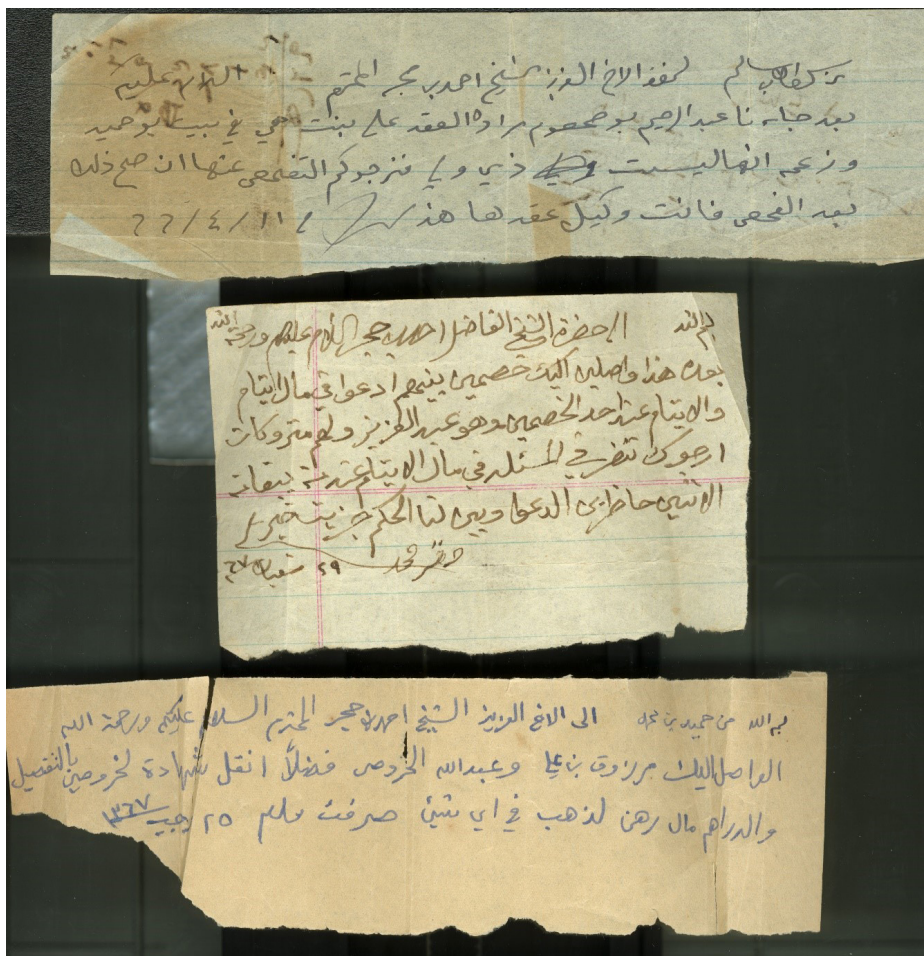 لحضرة الاخ العزيز الشيخ احمد بن حجر المحترم السلام عليكم
بعد جانا عبد الرحيم بو صمعوه مراده العقد على بنت في بيت بو حميد
وزعمه انها ليست ذي ولي فنرجوكم التفحص عنها ان صح ذلك
بعد الفحص فانت وكيل عقدها هذا
بسم الله الى حضرة الشيخ الفاضل احمد بن حجر السلام عليكم ورحمة الله
بعده هذا واصلين اليك خصمين بينهم ادعوا في مال ايتام
والايتام عند احد الخصمين وهو عبد العزيز ولهم متروكات
ارجوك تنضر في المسئله في مال الايتام
الاثنين حاظرين الدعوا وبين لنا الحكم جزيت خير
٢٩ شعبان ٦٧
بسم الله من حميد بن محمد الى الاخ العزيز الشيخ احمد بن حجر المحترم السلام عليكم ورحمة الله
الواصل اليك مرزوق بن علي وعبدالله الخروصي فضلاً انقل شهادة الخروصي بالتفصيل
والدراهم مال رهن الذهب في اي شيئ صرفت سلم ٢٥ رجب ١٣٦٧